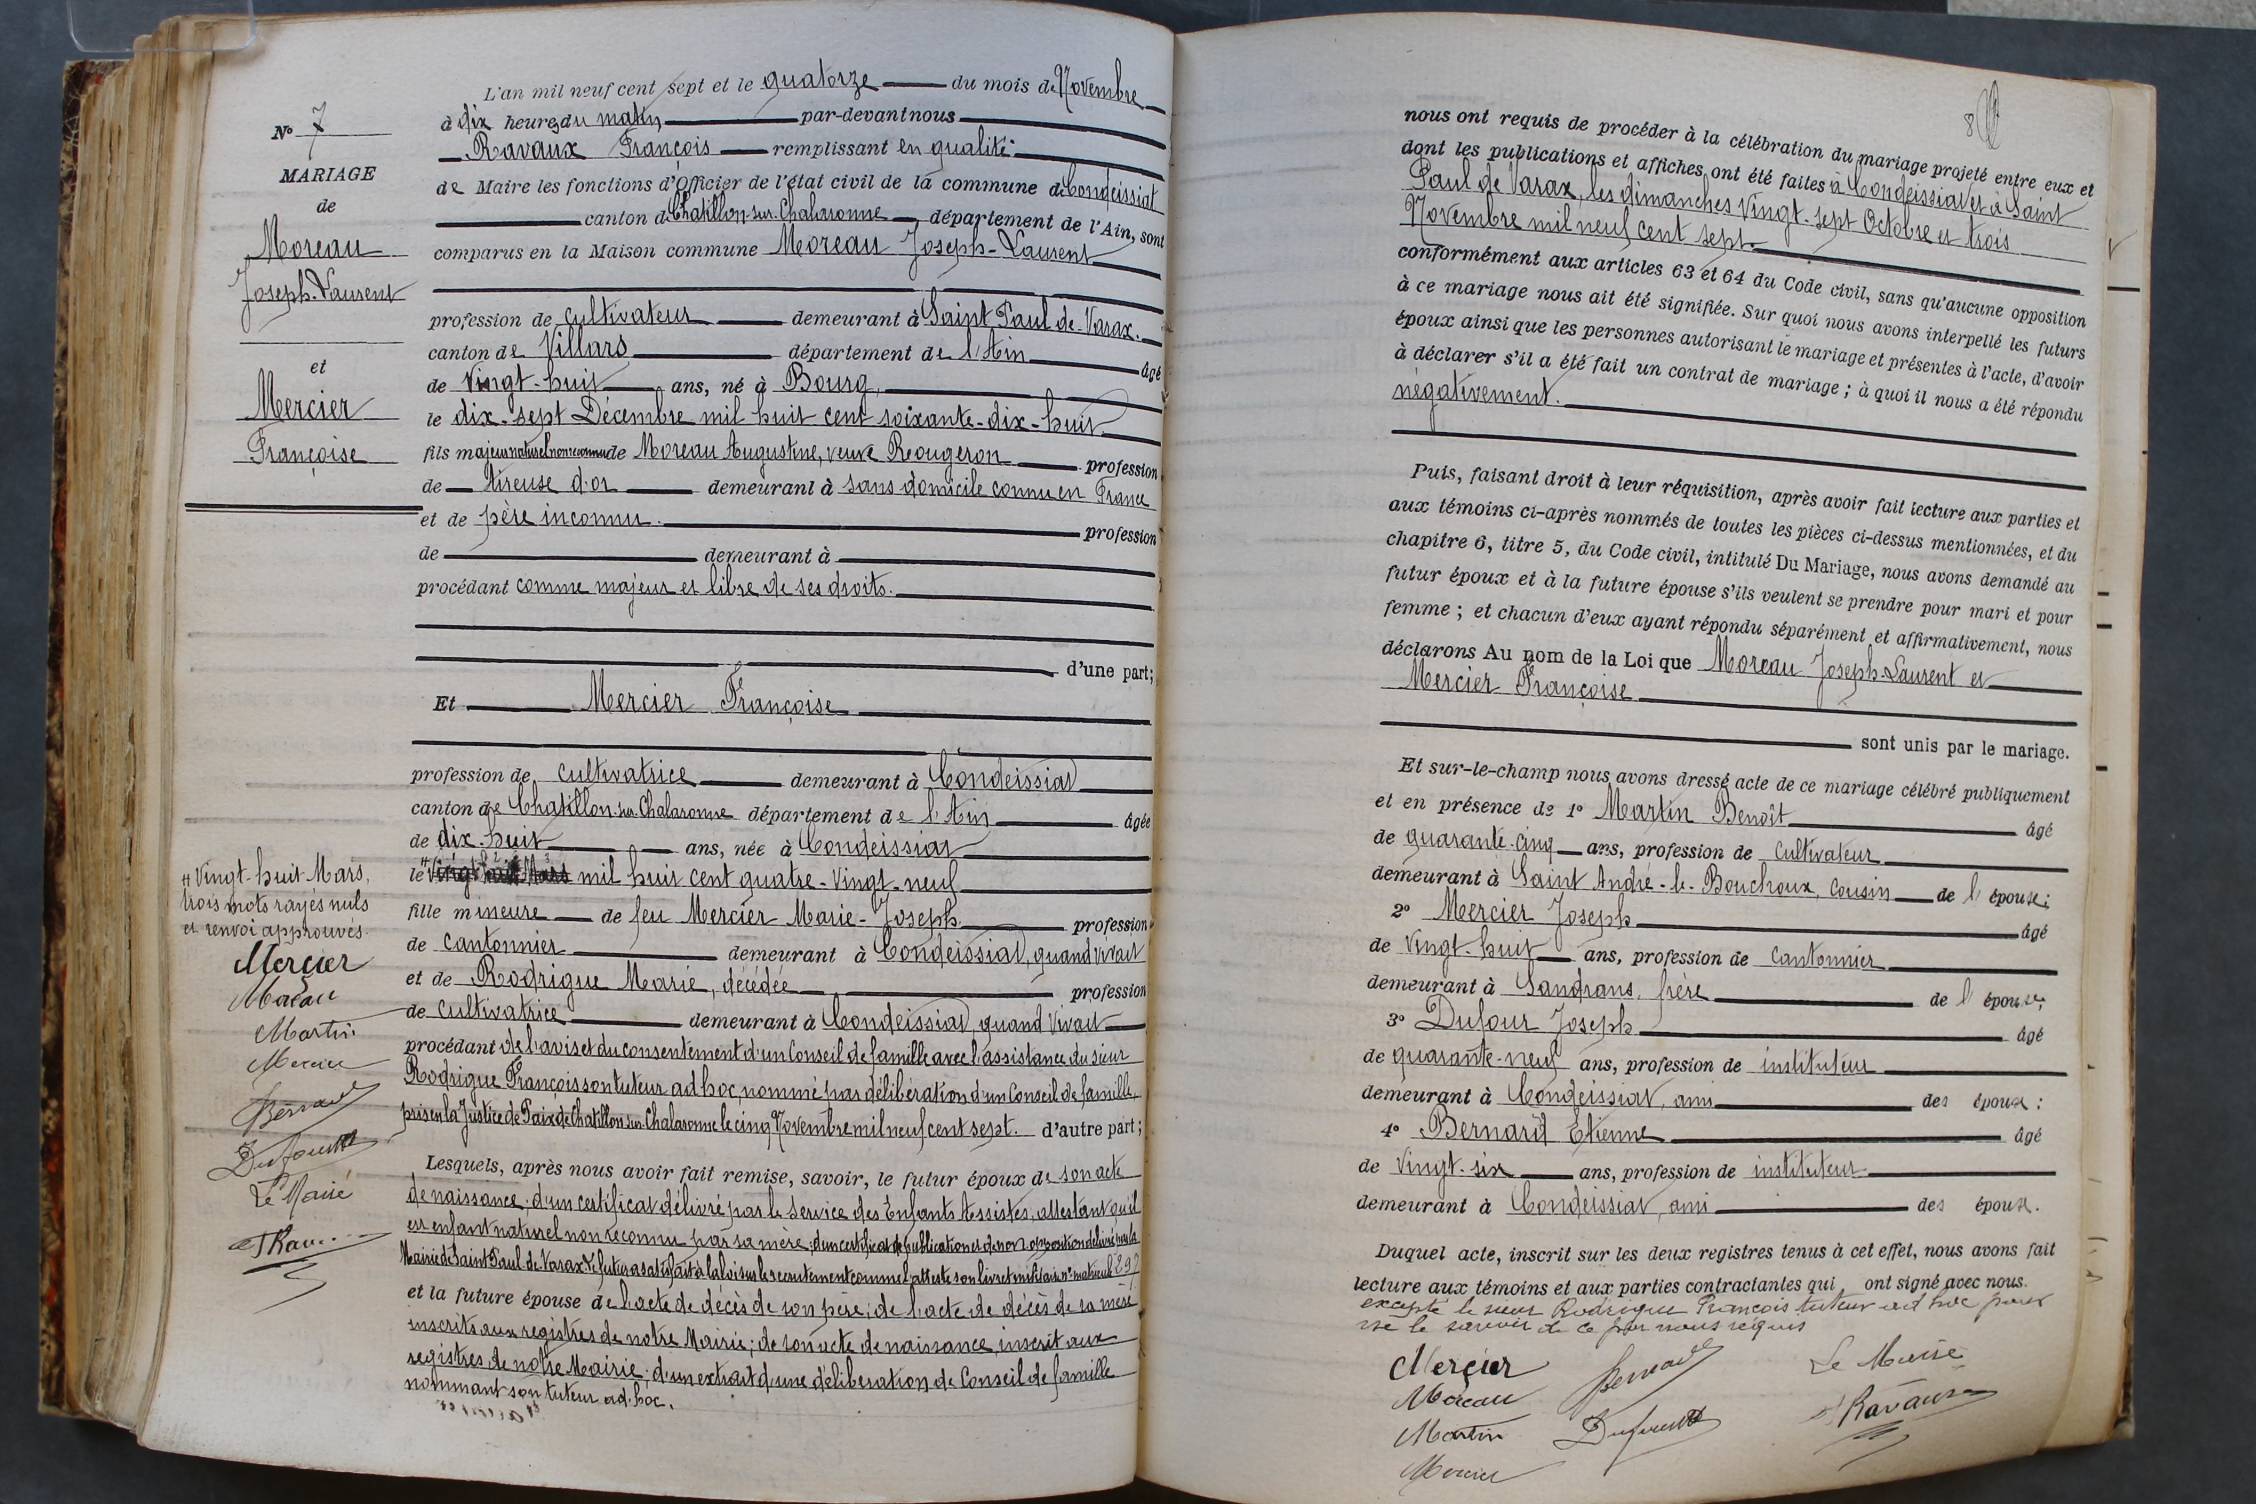 L'an mil neuf cent sept et le quatorze du mois de Novembre
à dix heures du matin par-devant nous
Ravaux François remplissant en qualité
de Maire les fonctions d'Officier de l'état civil de la commune de Condeissiat
canton de Chatillon-sur-Chalaronne département de l'Ain, sont
comparus en la Maison commune Moreau Joseph-Laurent
profession de cultivateur demeurant à Saint Paul-de-Varax.
canton de Villars département de l'Ain âgé
de vingt-huit ans, né à Bourg,
le dix-sept Décembre mil huit cent soixante-dix-huit
fils majeur naturel non reconnu de Moreau Augustine, veuve Rougeron profession
de tireuse d'or demeurant à sans domicile connu en France
et de père inconnu. profession
de demeurant à
procédant comme majeur et libre de ses droits.
d'une part;
Et Mercier Françoise
profession de cultivatrice demeurant à Condeissiat
canton de Chatillon-sur-Chalaronne département de l'Ain âgée
de dix-huit ans, née à Condeissiat
le vingt huit Mars mil huit cent quatre-vingt-neuf
fille mineure de feu Mercier Marie-Joseph profession
de cantonnier demeurant à Condeissiat, quand vivait
et de Rodrigue Marie, décédée profession
de cultivatrice demeurant à Condeissiat, quand vivait
procédant de l'avis et du consentement d'un Conseil de famille avec l'assistance du sieur
Rodrigue François son tuteur ad hoc, nommé par délibération d'un Conseil de famille,
pris en la Justice de Paix de Chatillon-sur-Chalaronne le cinq Novembre mil neuf cent sept. d'autre part;
Lesquels, après nous avoir fait remise, savoir, le futur époux de son acte
de naissance; d'un certificat délivré par le Service des Enfants Assistés, attestant qu'il
est enfant naturel non reconnu par sa mère; d'un certificat de publication et de non opposition délivré par la
Mairie de Saint Paul-de-Varax le futur a satisfait à la loi sur le recrutement comme l'atteste son livret militaire n° matricule 297
et la future épouse de l'acte de décès de son père; de l'acte de décès de sa mère
inscrits aux registres de notre Mairie; de son acte de naissance, inscrit aux
registres de notre Mairie; d'un extrait d'une délibération de Conseil de famille
nommant son tuteur ad-hoc.
N° 7
MARIAGE
de
Moreau
Joseph-Laurent
et
Mercier
Françoise
Vingt-huit Mars,
trois mots rayés nuls
et renvoi approuvés.
Merçier
Moreau
Martin
Mercier
Bernard
Dufour
Le Maire
Rav
8
nous ont requis de procéder à la célébration du mariage projeté entre eux et
dont les publications et affiches ont été faites à Condeissiat et à Saint
Paul de Varax, les dimanches vingt-sept Octobre et trois
Novembre mil neuf cent sept.
conformément aux articles 63 et 64 du Code civil, sans qu'aucune opposition
à ce mariage nous ait été signifiée. Sur quoi nous avons interpellé les futurs
époux ainsi que les personnes autorisant le mariage et présentes à l'acte, d'avoir
à déclarer s'il a été fait un contrat de mariage; à quoi il nous a été répondu
négativement.
Puis, faisant droit à leur réquisition, après avoir fait lecture aux parties et
aux témoins ci-après nommés de toutes les pièces ci-dessus mentionnées, et du
chapitre 6, titre 5, du Code civil, intitulé Du Mariage, nous avons demandé au
futur époux et à la future épouse s'ils veulent se prendre pour mari et pour
femme; et chacun d'eux ayant répondu séparément et affirmativement, nous
déclarons Au nom de la Loi que Moreau Joseph-Laurent et
Mercier Françoise
sont unis par le mariage.
Et sur-le-champ nous avons dressé acte de ce mariage célébré publiquement
et en présence de 1° Martin Benoît âgé
de quarante-cinq ans, profession de cultivateur
demeurant à Saint André-le-Bouchoux, cousin de l'épouse;
2° Mercier Joseph âgé
de vingt-huit ans, profession de cantonnier
demeurant à Sandrans, frère de l'épouse;
3° Dufour Joseph âgé
de quarante-neuf ans, profession de instituteur
demeurant à Condeissiat, ami des époux;
4° Bernard Etienne âgé
de vingt-six ans, profession de instituteur
demeurant à Condeissiat, ami des époux.
Duquel acte, inscrit sur les deux registres tenus à cet effet, nous avons fait
lecture aux témoins et aux parties contractantes qui ont signé avec nous.
excepté le sieur Rodrigue François tuteur ad hoc pour
ne le savoir de ce par nous requis
Merçier
Moreau
Martin
Mercier
Bernard
Dufour
Le Maire
Ravaux